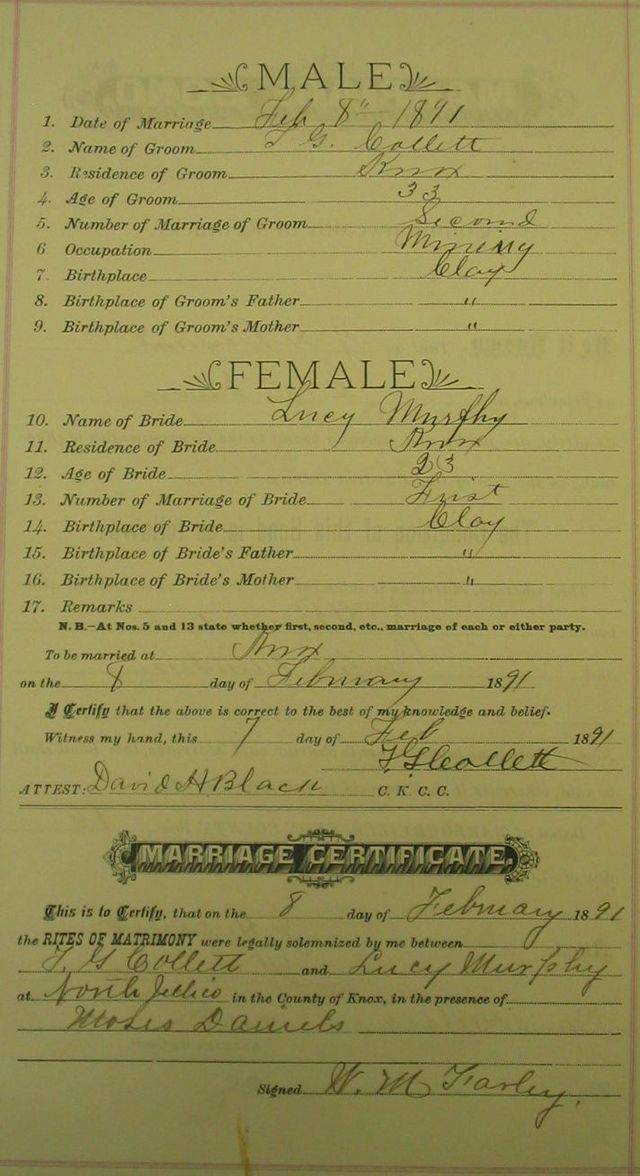 MALE
1. Date of Marriage Feb 8" 1891
2. Name of Groom G. Collett
3. Residence of Groom Knox
4. Age of Groom 33
5. Number of Marriage of Groom Second
6 Occupation Mining
7. Birthplace Clay
8. Birthplace of Groom's Father "
9. Birthplace of Groom's Mother "
FEMALE
10. Name of Bride Lucy Murphy
11. Residence of Bride Knox
12. Age of Bride 23
13. Number of Marriage of Bride First
14. Birthplace of Bride Clay
15. Birthplace of Bride's Father "
16. Birthplace of Bride's Mother "
17. Remarks
N. B.—At Nos. 5 and 13 state whether first, second, etc., marriage of each or either party.
To be married at Knox
on the 8 day of February 1891
I Certify that the above is correct to the best of my knowledge and belief.
Witness my hand, this 7 day of Feb 1891
G Collett
ATTEST: David H Black C. K. C. C.
MARRIAGE CERTIFICATE.
This is to Certify, that on the 8 day of February 1891
the RITES OF MATRIMONY were legally solemnized by me between
G Collett and Lucy Murphy
at North Jellico in the County of Knox, in the presence of
Moses Daniels
Signed W. M Farley.